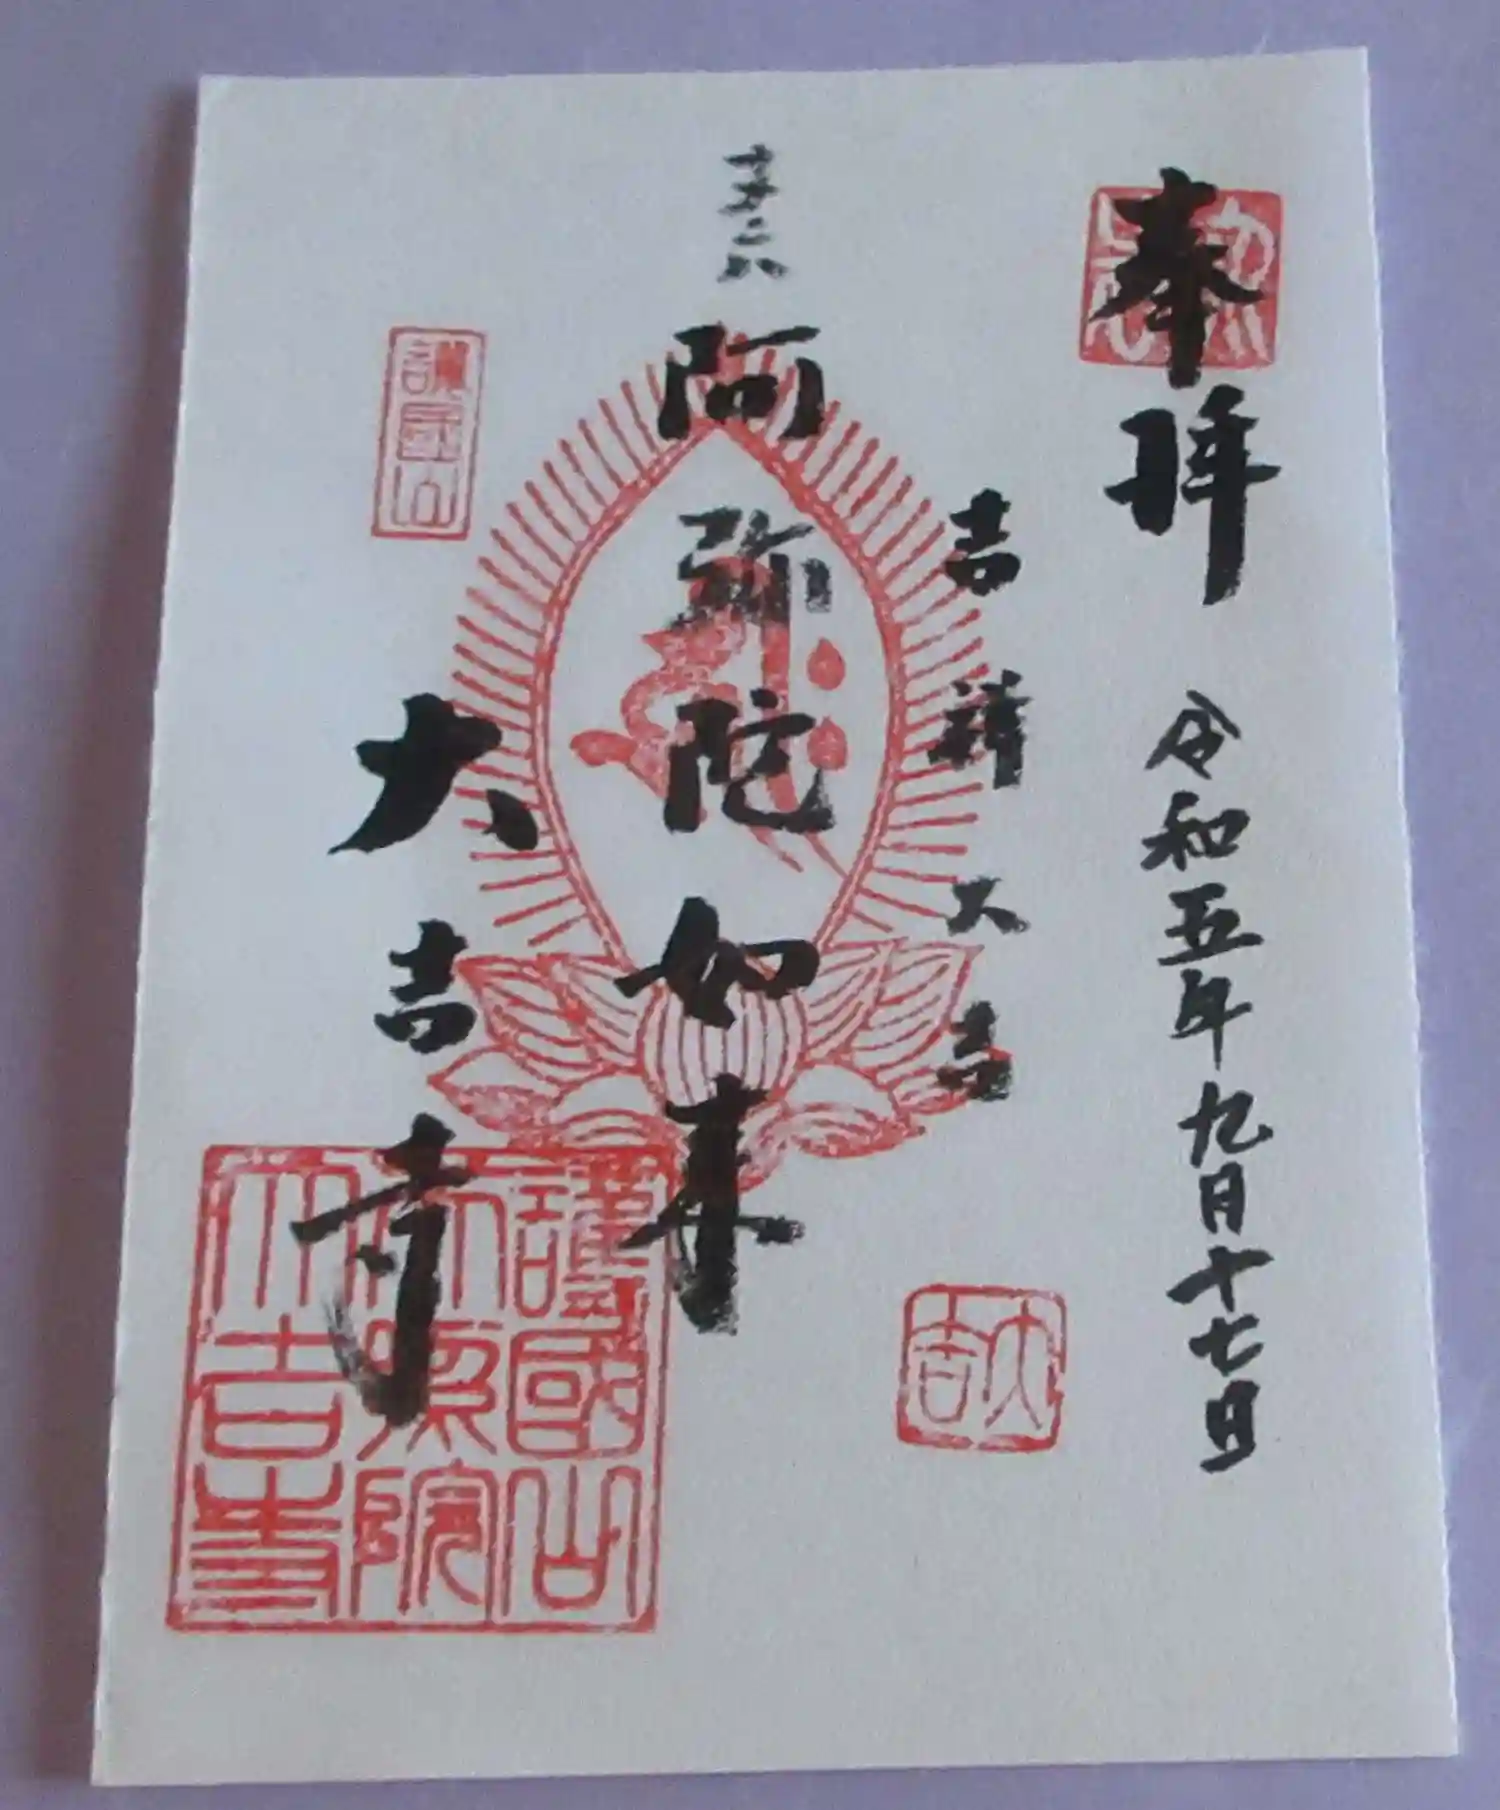 奉拝
令和五年九月十七日
吉祥大吉
大吉
阿弥陀如来
護国山
大吉寺
護國山
院
大吉寺